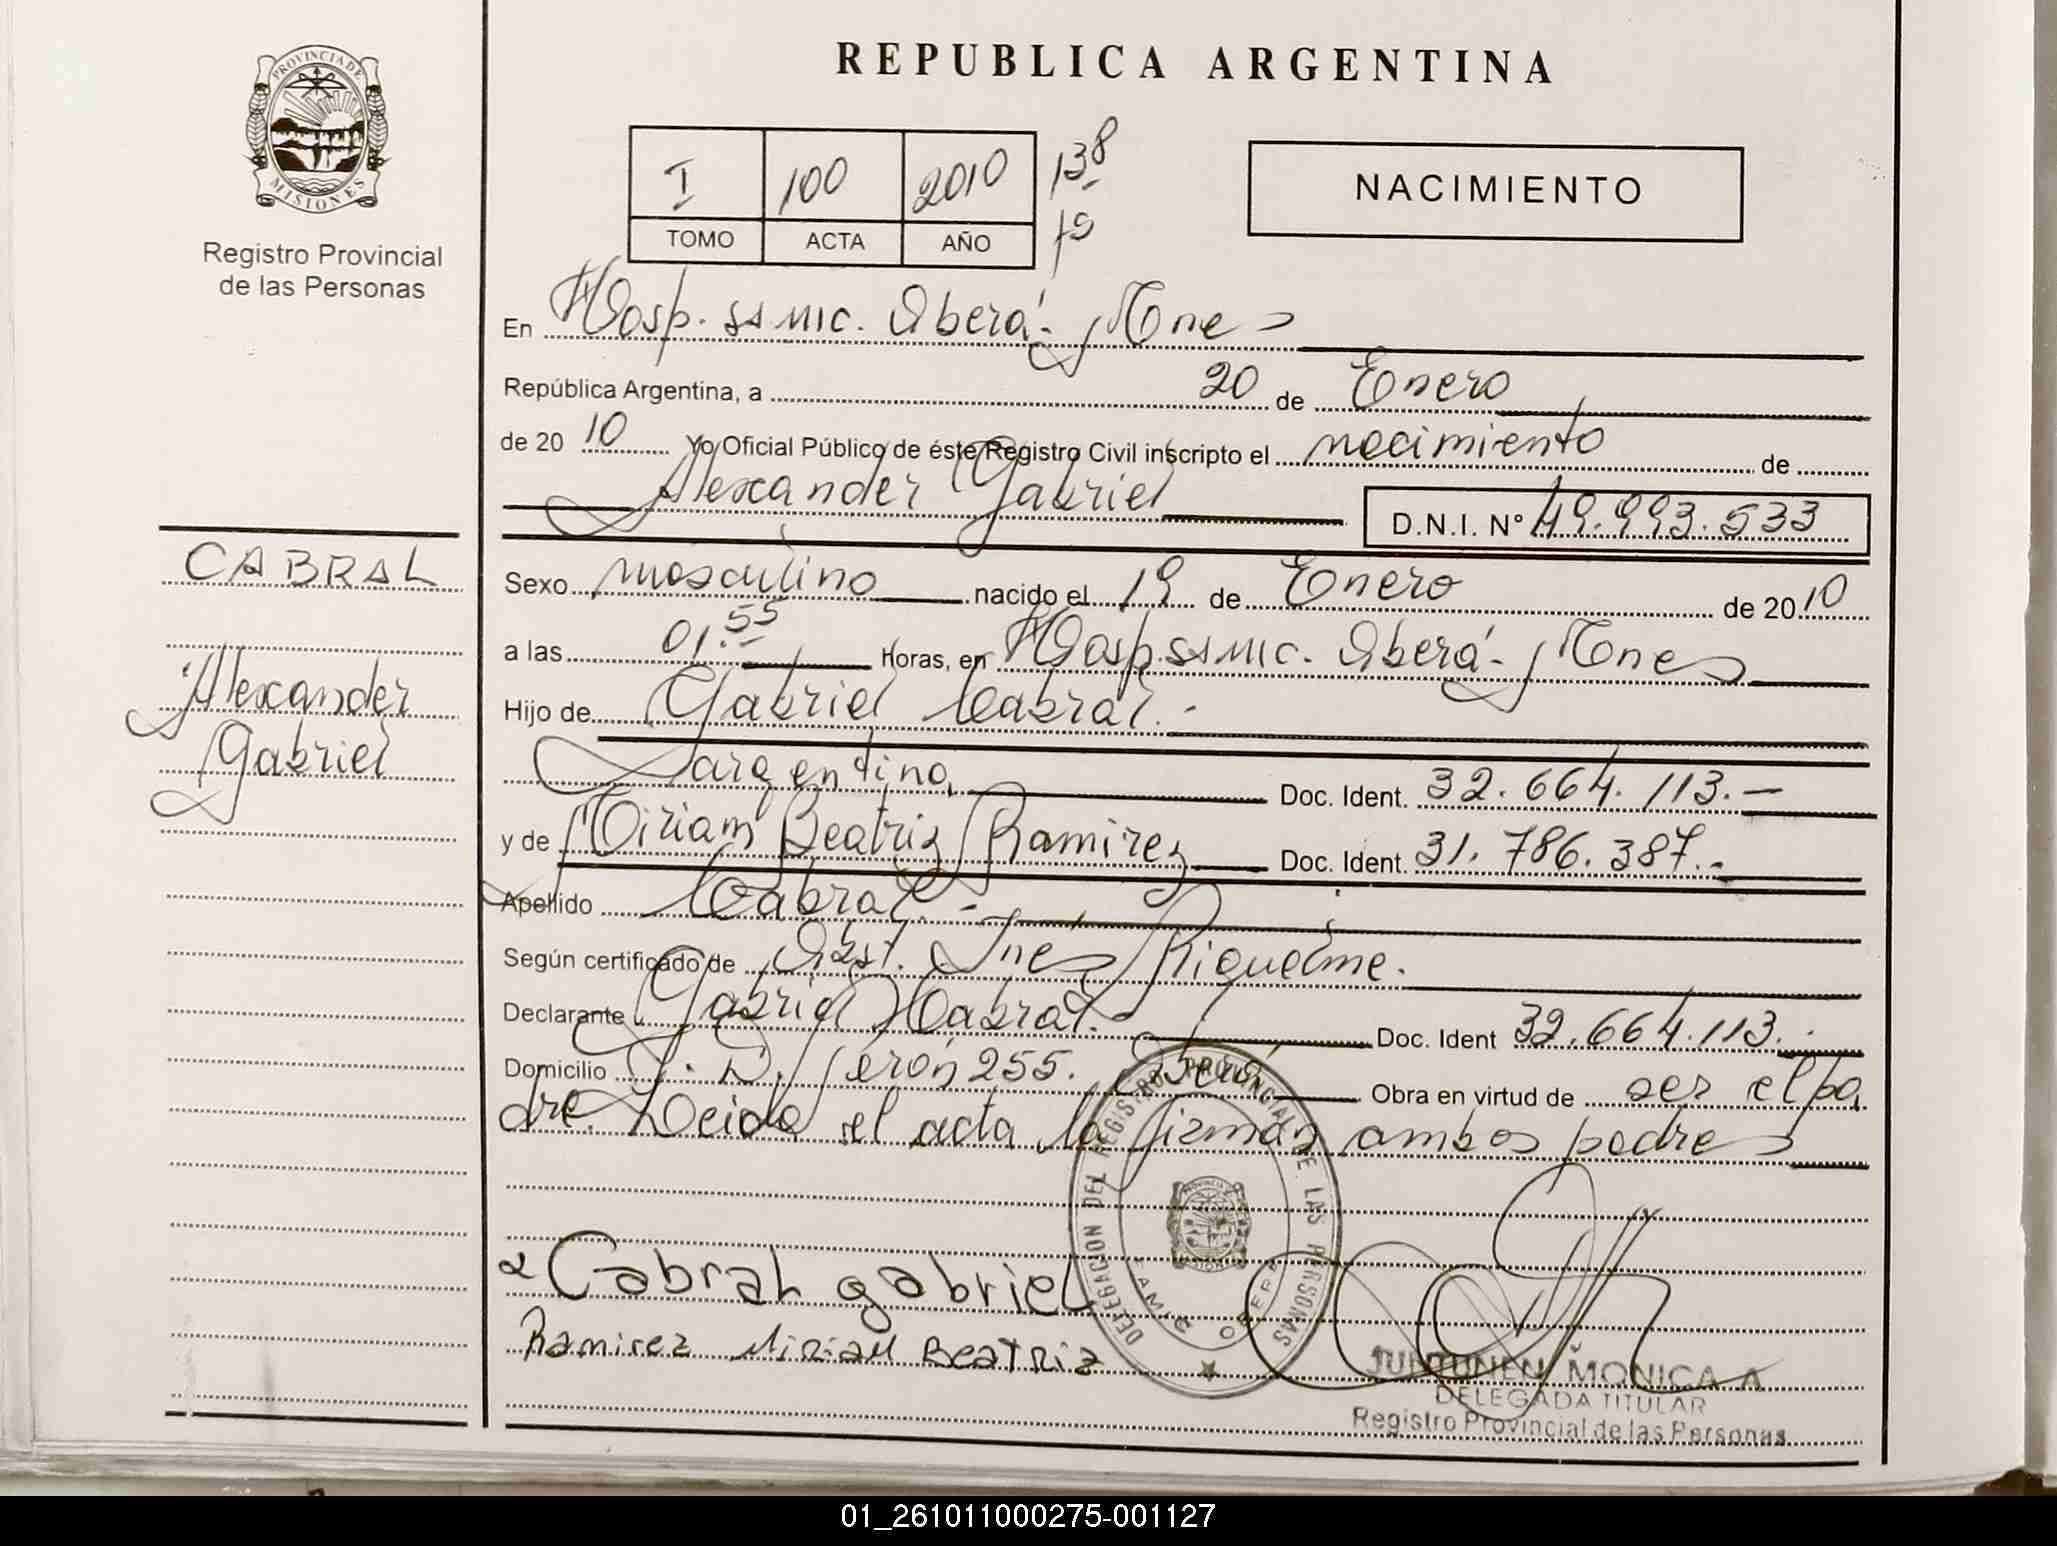 REPUBLICA ARGENTINA
PROVINCIA DE
MISIONES
Registro Provincial
de las Personas
I 100 2010 138
TOMO ACTA AÑO
NACIMIENTO
En Hosp. ssmic. Oberá - Mnes
República Argentina, a 20 de Enero
de 20 10 Yo Oficial Público de éste Registro Civil inscripto el nacimiento de
Alexander Gabriel D.N.I. N° 49.993.533
CABRAL
Alexander
Gabriel
Sexo masculino nacido el 19 de Enero de 20 10
a las 01.55 Horas, en Hosp. ssmic. Oberá - Mnes
Hijo de Gabriel Cabral.-
argentino Doc. Ident. 32.664.113.-
y de Miriam Beatriz Ramirez Doc. Ident. 31.786.387.-
Apellido Cabral.-
Según certificado de Obst. Ines Riquelme.
Declarante Gabriel Cabral.- Doc. Ident 32.664.113.-
Domicilio J. D. Perón 255. Oberá Obra en virtud de ser el pa
dre. Leida el acta la firman ambos padres
Cabral gabriel
Ramirez Miriam Beatriz
DELEGACION DEL REGISTRO PROVINCIAL DE LAS PERSONAS
SAMIC OBERA
JUNTUNEN MONICA A
DELEGADA TITULAR
Registro Provincial de las Personas
01_261011000275-001127